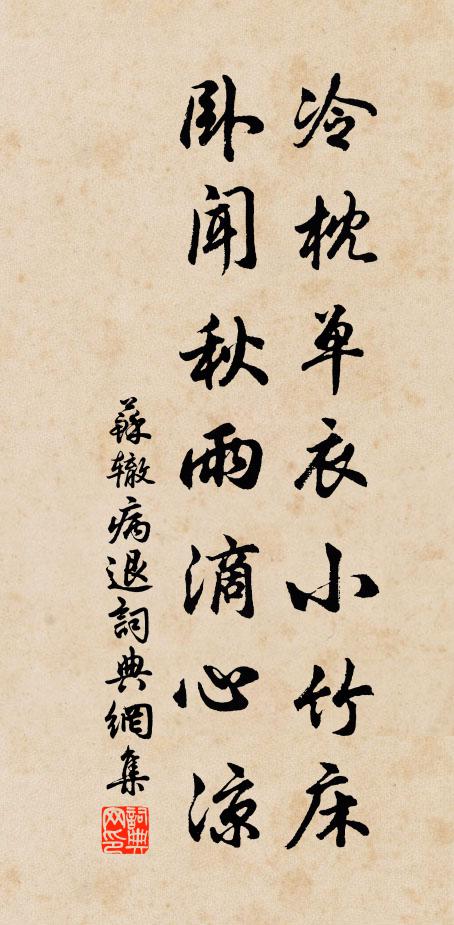 冷枕单衣小竹床
卧闻秋雨滴心凉
蘇辙病退詞典網集
詞典网印